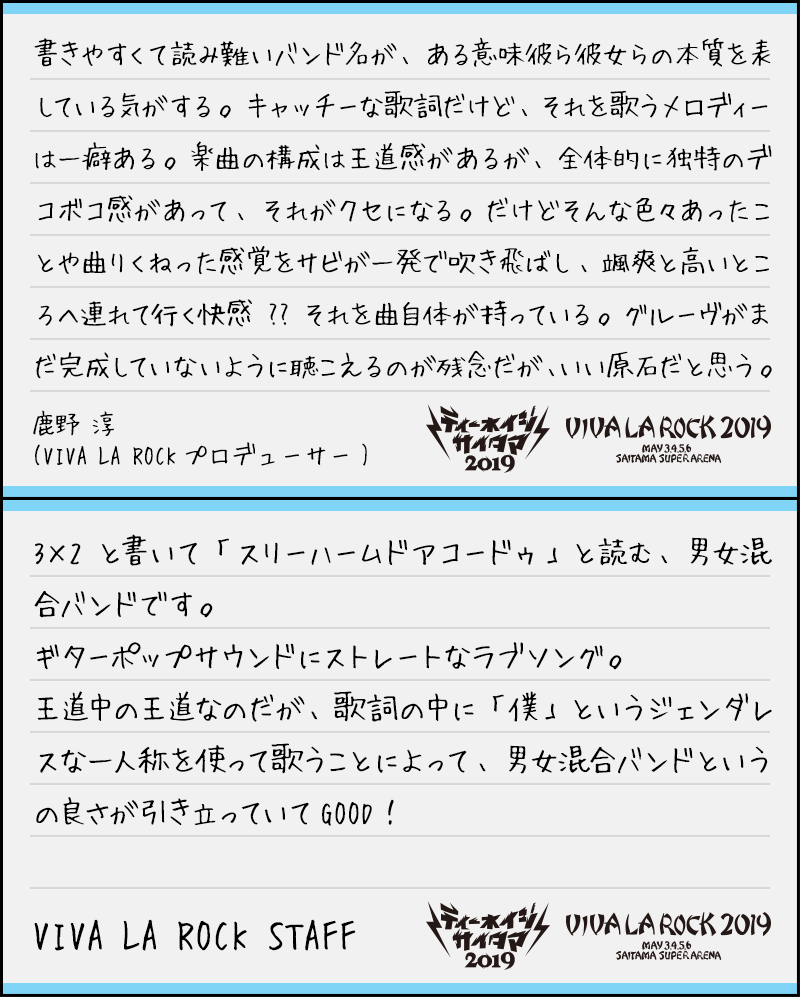 書きやすくて読み難いバンド名が、ある意味彼ら彼女らの本質を表
している気がする。キャッチーな歌詞だけど、それを歌うメロディー
は一癖ある。楽曲の構成は王道感があるが、全体的に独特のデ
コボコ感があって、それがクセになる。だけどそんな色々あったこ
とや曲りくねった感覚をサビが一発で吹き飛ばし、颯爽と高いとこ
ろへ連れて行く快感 ?? それを曲自体が持っている。グルーヴがま
だ完成していないように聴こえるのが残念だが、いい原石だと思う。
鹿野 淳
(VIVA LA ROCKプロデューサー)
ディーネイジ
サイタマ
2019
VIVA LA ROCK 2019
MAY 3.4.5.6
SAITAMA SUPER ARENA
3×2 と書いて「スリーハームドアコードゥ」と読む、男女混
合バンドです。
ギターポップサウンドにストレートなラブソング。
王道中の王道なのだが、歌詞の中に「僕」というジェンダレ
スな一人称を使って歌うことによって、男女混合バンドという
の良さが引き立っていてGOOD!
VIVA LA ROCK STAFF
ディーネイジ
サイタマ
2019
VIVA LA ROCK 2019
MAY 3.4.5.6
SAITAMA SUPER ARENA